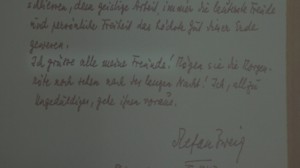 schliessen, dem geistige Arbeit immer die lauterste Freude
und persönliche Freiheit das höchste Gut dieser Erde
gewesen.
Ich grüsse alle meine Freunde! Mögen sie die Morgen-
röte noch sehen nach der langen Nacht! Ich, allzu
Ungeduldiger, gehe ihnen voraus.
Stefan Zweig